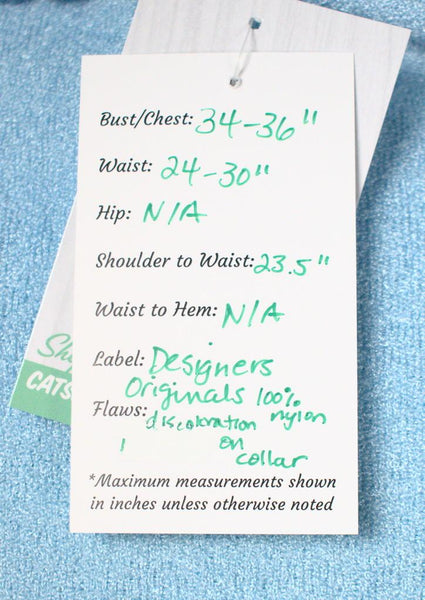 Bust/Chest: 34-36"
Waist: 24-30"
Hip: N/A
Shoulder to Waist: 23.5"
Waist to Hem: N/A
Label: Designers
Originals 100% nylon
Flaws: discoloration
on
collar
*Maximum measurements shown
in inches unless otherwise noted
CATS